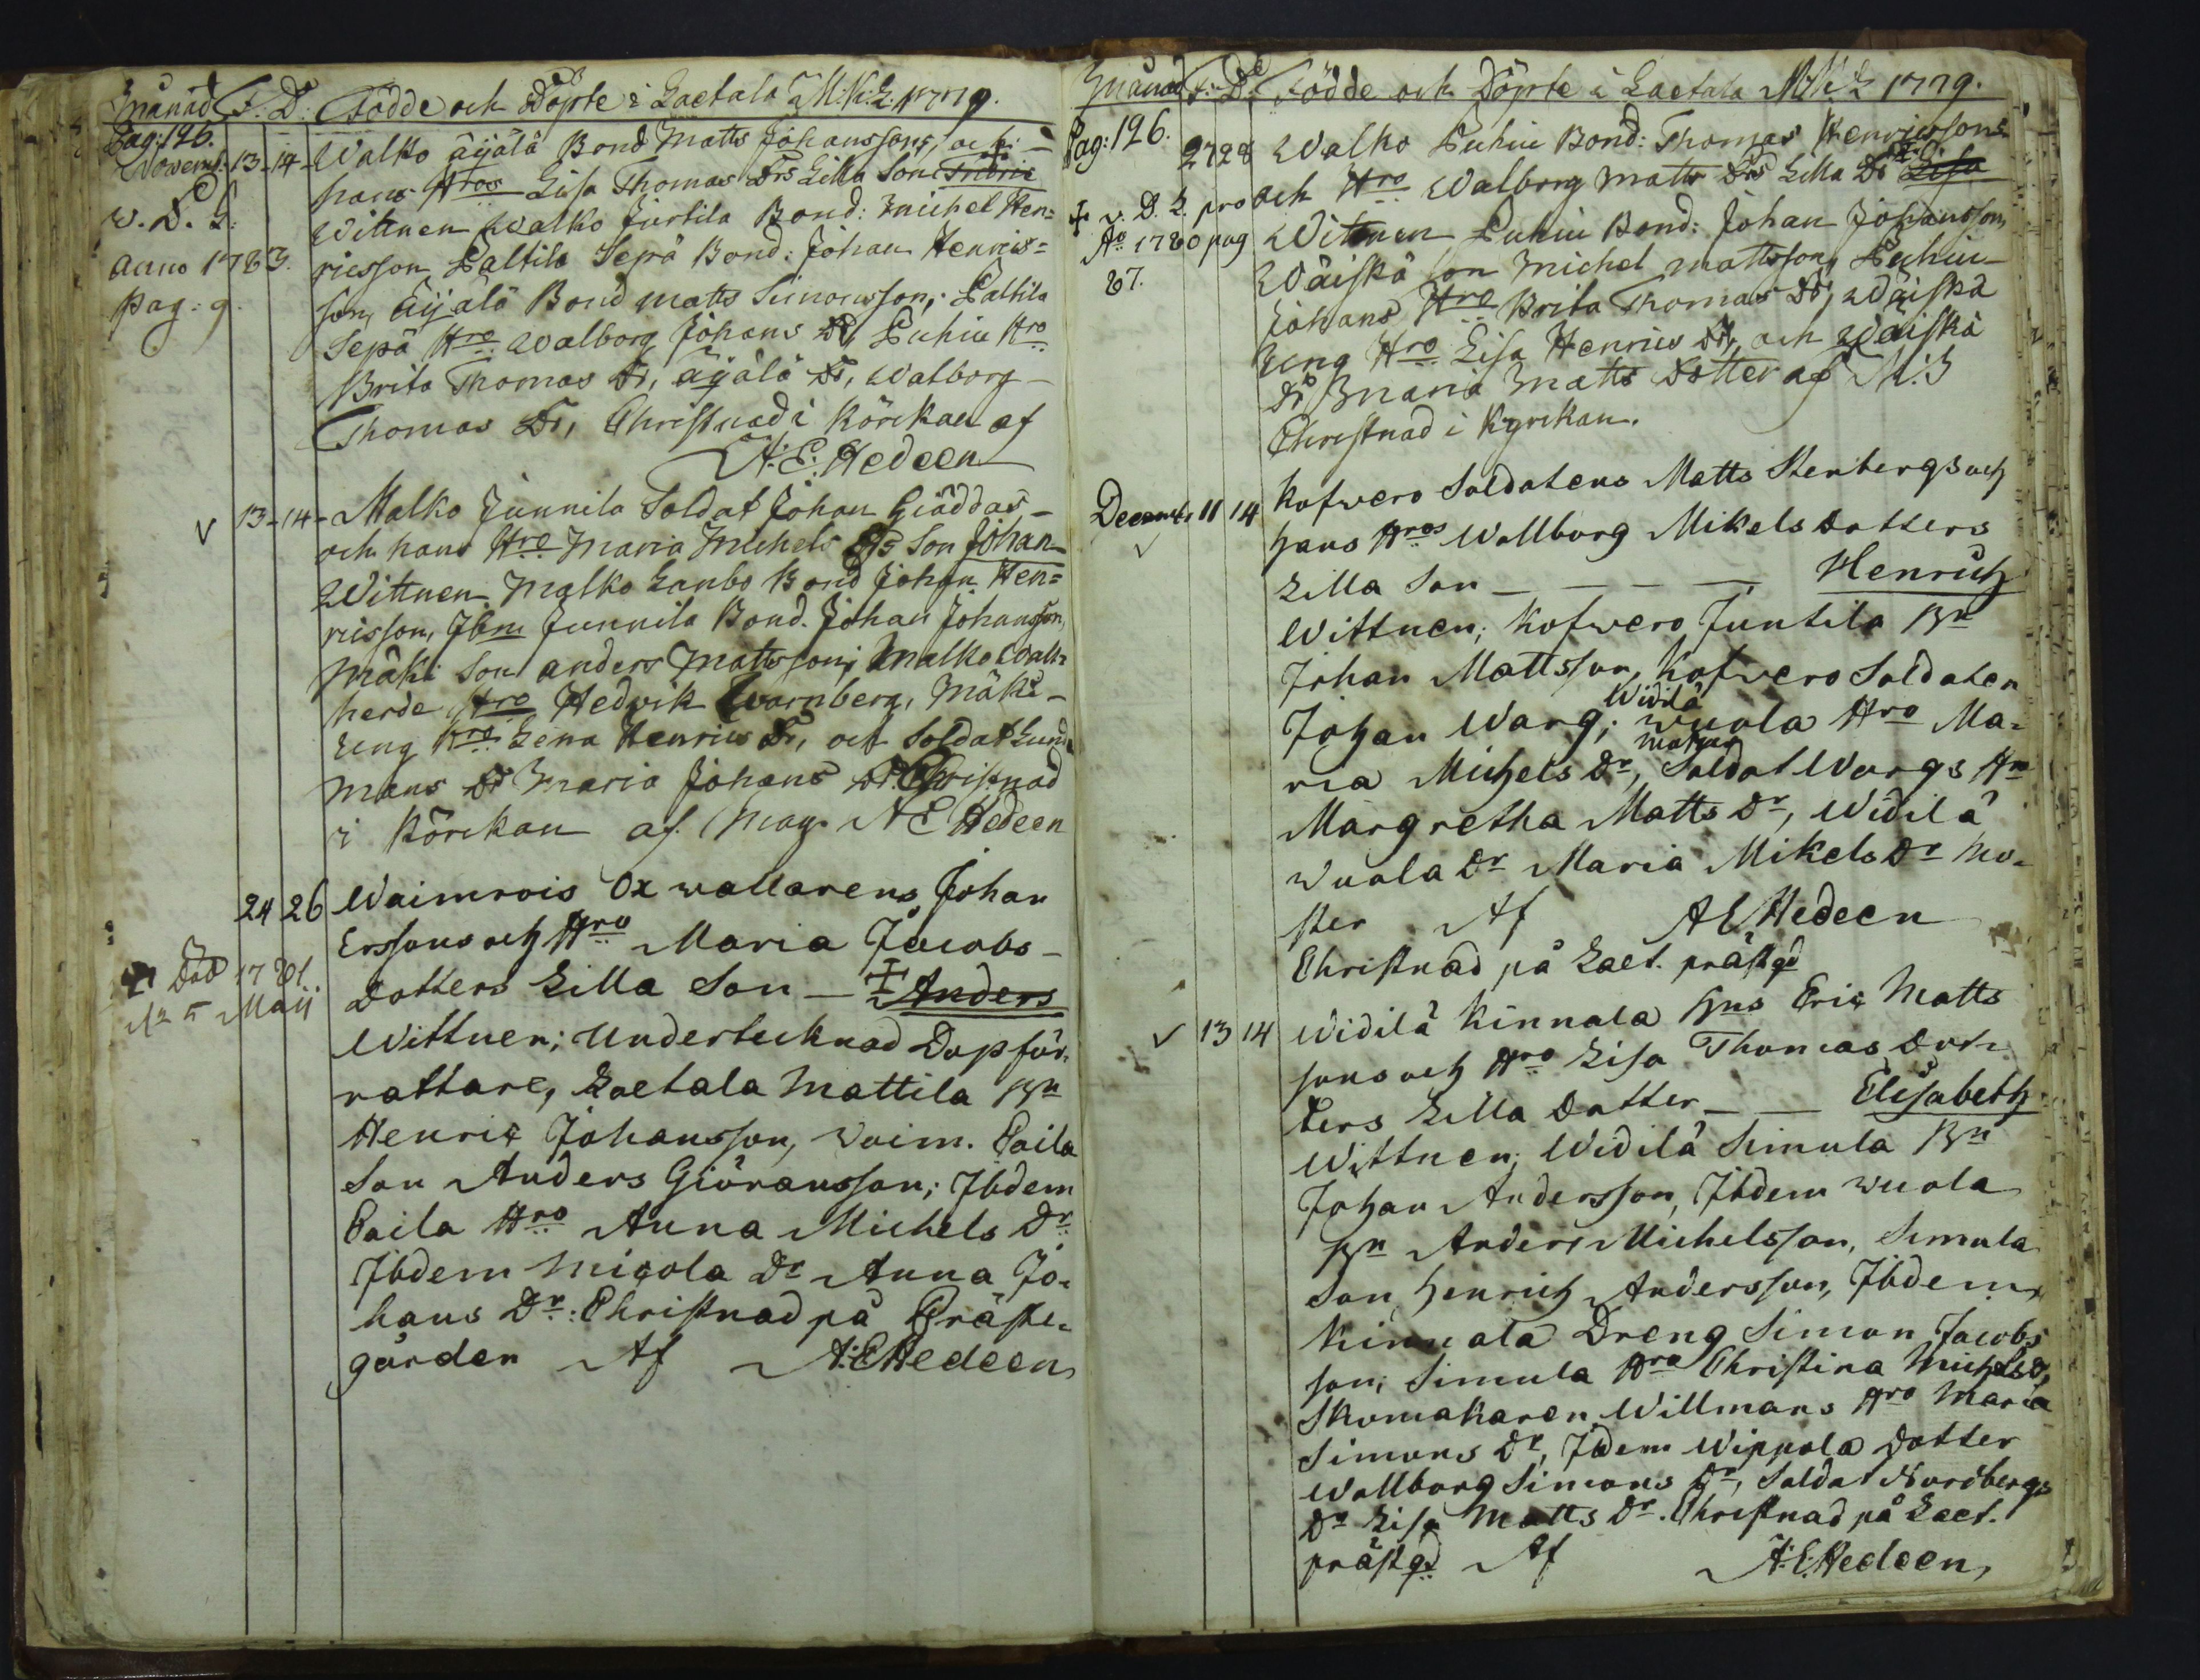 Månad F. D. Födde och Döpte i Laetala M:K:L: 1779.
Pag: 126.
Novemb: 13-14- Walko äÿälä Bond Matts Johanssons, och
hans Hros Lisa Thomas Drs Lilla Son Fridric
v. D. L: Wittnen Walko Jurtila Bond: Michel Hen=
anno 1783. ricsson, Laltila Sepä Bond: Johan Henrics=
pag: 9. son, Äÿälä Bond Matts Simonsson; Laltila
Sepä Hro Walborg Johans Dr, Puhiu Hro
Brita Thomas Dr, äÿälä Dr, Walborg
Thomas Dr, Christnad i Körckan af
A: E: Hedeen
V 13-14- Malko Junnila Soldat Johan Giäddas
och hans Hro Maria Michels Drs Son Johan
Wittnen Malko Laubo Bond Johan Hen=
ricsson, Ibm Junnila Bond. Johan Johansson,
Mäki Son anders Mattsson; Malko Wall=
herde Hro Hedvik Warnberg, Mäki
Eng Hro Lena Henrics Dr, och Soldat Lund
mans Dr Maria Johans Dr. Christnad
i Körckan af. Mag. A E Hedeen
24 26 Waimrois Oxwallarens Johan
Erssons och Hro Maria Jacobs
Död 1781 Dotters Lilla Son — ‡ Anders
5 Maij
Wittnen; Undertecknad Dopför-
rättare, Laetala Mattila Bn
Henric Johansson, Waim. Paila
Son Anders Giöransson; Ibdem
Paila Hro Anna Michels Dr
Ibdem Micola Dr Anna Jo-
hans Dr: Christnad på Präste-
gården Af A:E Hedeen
Månad F: D. Födde och Döpte i Laetala M:K:L 1779.
Pag: 126. 27 28 Walko Puhiu Bond: Thomas Henricssons
och Hro Walborg Matts Drs Lilla Dr Lisa
‡ v. D. L. pro Wittnen Puhiu Bond: Johan Johansson,
Ao 1780 pag Wäiskä son Michel Mattsson, Puhiu
87. Johans Hro Brita Thomas Dr, Wäiskä
Eng Hro Lisa Henrics Dr, och Wäiskä
Dr Maria Matts Dotter af M:S
Christnad i Kyrckan.
Decemb. 11 14 Kofwero Soldatens Matts Stenbergs och
V hans Hros Wallborg Mikels Dotters
Lilla Son — — — — Henrich
Wittnen; Kofwero Juntila Bn
Johan Mattsson, Kofwero Soldaten
Widilä
Johan Warg; Wuola Hro Ma-
ria Michels Dr, Soldat Wargs Hro
Margretha Matts Dr, Widilä
Wuola Dr Maria Mikels Dr Mo-
ster Af A E Hedeen
Christnad på Laet. prästgd
V 13 14 Widilä Kinnala Bns Eric Matts
sons och Hro Lisa Thomas Dot-
ters Lilla Dotter — — Elisabeth
Wittnen; Widilä Simula Bn
Johan Andersson, Ibdem Wuola
Bn Anders Michelsson, Simula
Son Henrich Andersson, Ibdem
Kinnala Dreng Simon Jacobs
son; Simula Hro Christina Michels D,
Skomakaren Willmans Hro Maria
Simons Dr, Ibdem Wippola Dotter
Wallborg Simons Dr, Soldat Nordbergs
Dr Lisa Matts Dr. Christnad på Laet.
prästgd Af A:E Hedeen